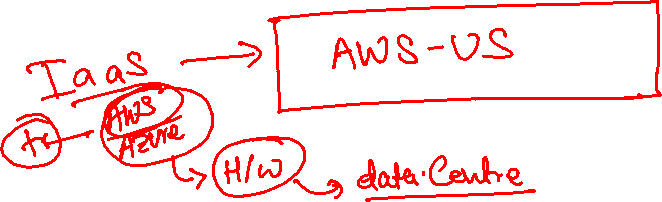 IaaS → AWS-US
AWS
Azure
H/W → data Centre